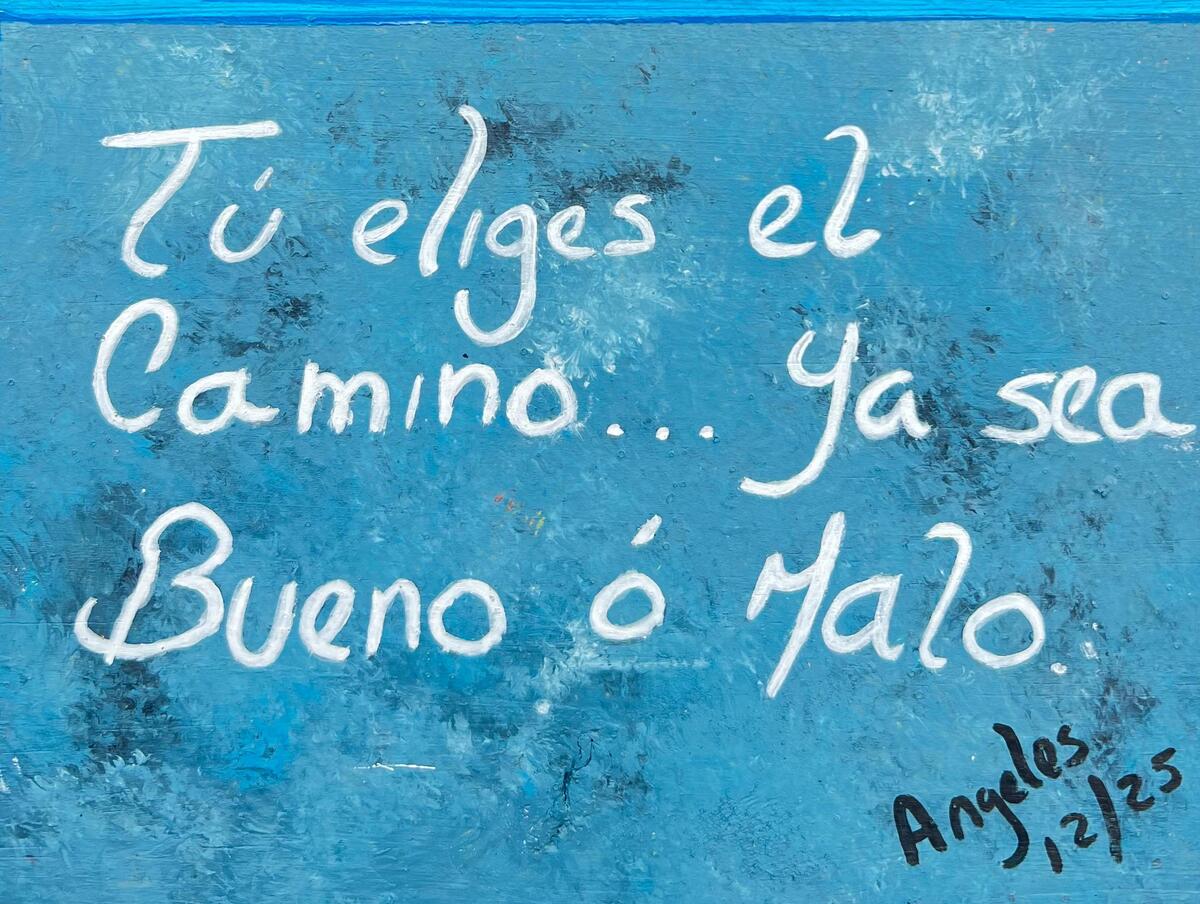 Tú eliges el
Camino... Ya sea
Bueno ó Malo.
Angeles
12/25